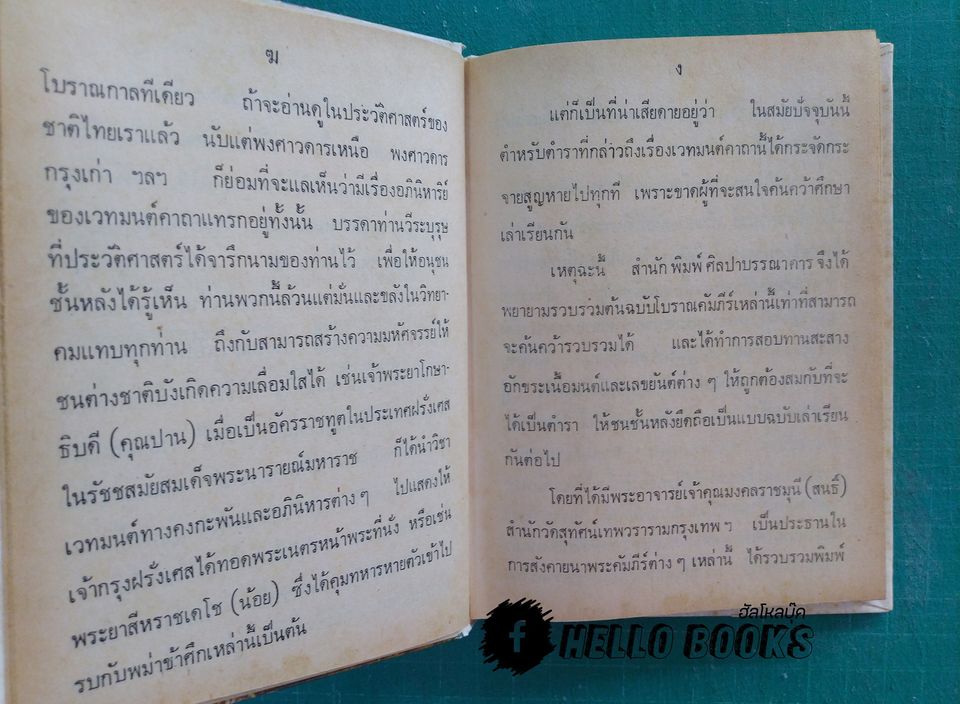 ฆ
โบราณกาลทีเดียว ถ้าจะอ่านดูในประวัติศาสตร์ของ
ชาติไทยเราแล้ว นับแต่พงศาวดารเหนือ พงศาวดาร
กรุงเก่า ฯลฯ ก็ย่อมที่จะแลเห็นว่ามีเรื่องอภินิหาริย์
ของเวทมนต์คาถาแทรกอยู่ทั้งนั้น บรรดาท่านวีระบุรุษ
ที่ประวัติศาสตร์ได้จารึกนามของท่านไว้ เพื่อให้อนุชน
ชั้นหลังได้รู้เห็น ท่านพวกนี้ล้วนแต่มั่นและขลังในวิทยา-
คมแทบทุกท่าน ถึงกับสามารถสร้างความมหัศจรรย์ให้
ชนต่างชาติบังเกิดความเลื่อมใสได้ เช่นเจ้าพระยาโกษา-
ธิบดี (คุณปาน) เมื่อเป็นอัครราชทูตในประเทศฝรั่งเศส
ในรัชชสมัยสมเด็จพระนารายณ์มหาราช ก็ได้นำวิชา
เวทมนต์ทางคงกะพันและอภินิหารต่าง ๆ ไปแสดงให้
เจ้ากรุงฝรั่งเศสได้ทอดพระเนตรหน้าพระที่นั่ง หรือเช่น
พระยาสีหราชเดโช (น้อย) ซึ่งได้คุมทหารหายตัวเข้าไป
รบกับพม่าข้าศึกเหล่านี้เป็นต้น
ง
แต่ก็เป็นที่น่าเสียดายอยู่ว่า ในสมัยปัจจุบันนี้
ตำหรับตำราที่กล่าวถึงเรื่องเวทมนต์คาถานี้ได้กระจัดกระ
จายสูญหายไปทุกที เพราะขาดผู้ที่จะสนใจค้นคว้าศึกษา
เล่าเรียนกัน
เหตุฉะนี้ สำนักพิมพ์ศิลปาบรรณาคาร จึงได้
พยายามรวบรวมต้นฉบับโบราณคัมภีร์เหล่านี้เท่าที่สามารถ
จะค้นคว้ารวบรวมได้ และได้ทำการสอบทานสะสาง
อักขระเนื้อมนต์และเลขยันต์ต่าง ๆ ให้ถูกต้องสมกับที่จะ
ได้เป็นตำรา ให้ชนชั้นหลังยึดถือเป็นแบบฉบับเล่าเรียน
กันต่อไป
โดยที่ได้มีพระอาจารย์เจ้าคุณมงคลราชมุนี (สนธิ์)
สำนักวัดสุทัศน์เทพวรารามกรุงเทพ ฯ เป็นประธานใน
การสังคายนาพระคัมภีร์ต่าง ๆ เหล่านี้ ได้รวบรวมพิมพ์
ฮัลโหลบุ๊ค
f HELLO BOOKS